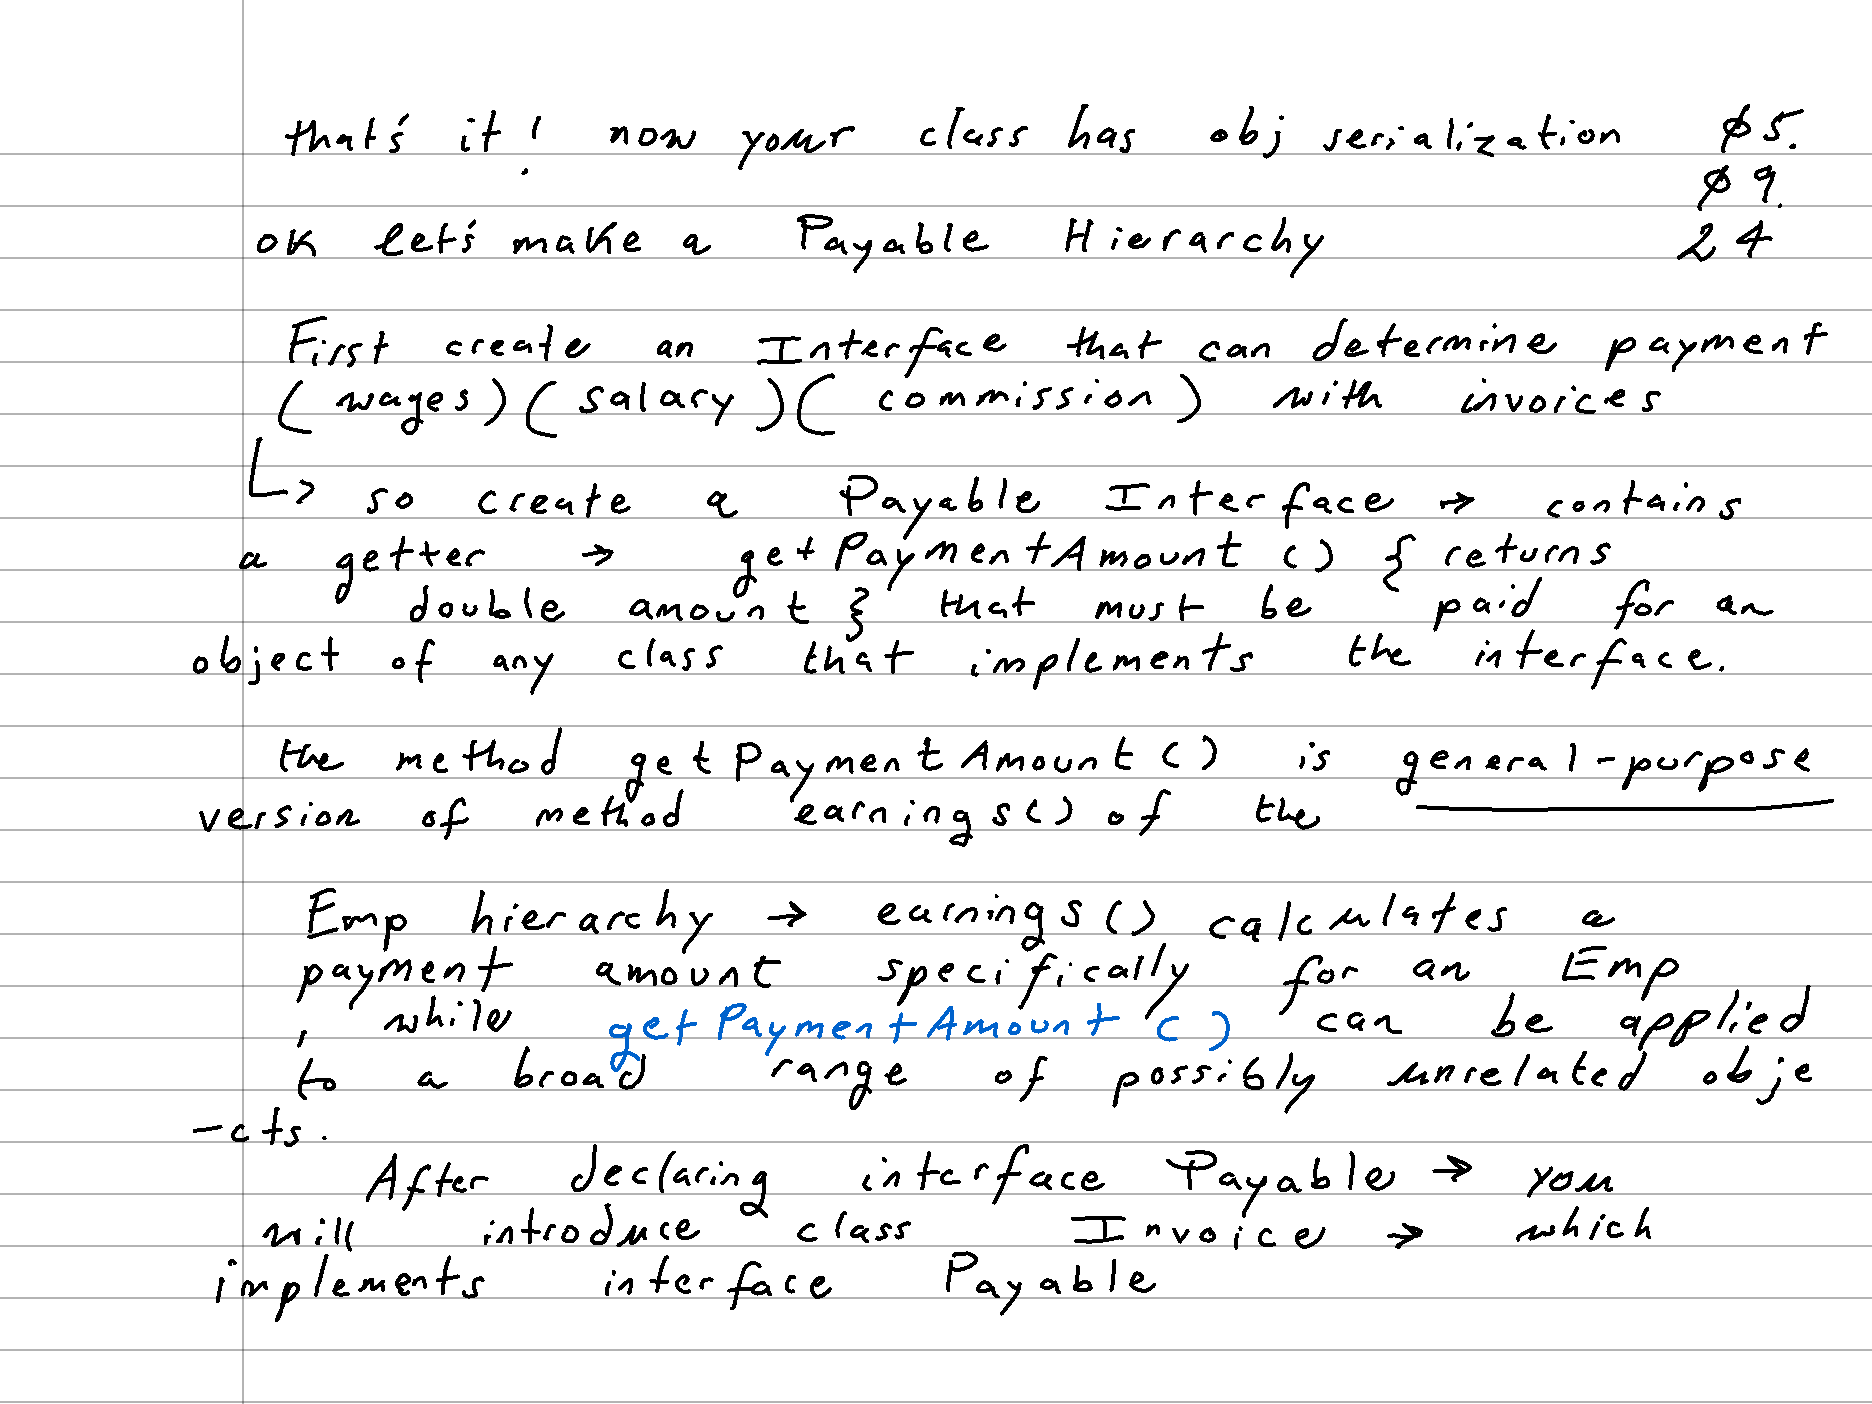 that's it! now your class has obj serialization ø5.
ø9.
ok let's make a Payable Hierarchy 24
First create an Interface that can determine payment
(wages)(salary)(commission) with invoices
↳ so create a Payable Interface → contains
a getter → getPaymentAmount() { returns
double amount } that must be paid for an
object of any class that implements the interface.
the method getPaymentAmount() is general-purpose
version of method earnings() of the
Emp hierarchy → earnings() calculates a
payment amount specifically for an Emp
, while getPaymentAmount() can be applied
to a broad range of possibly unrelated obje
-cts.
After declaring interface Payable → you
will introduce class Invoice → which
implements interface Payable